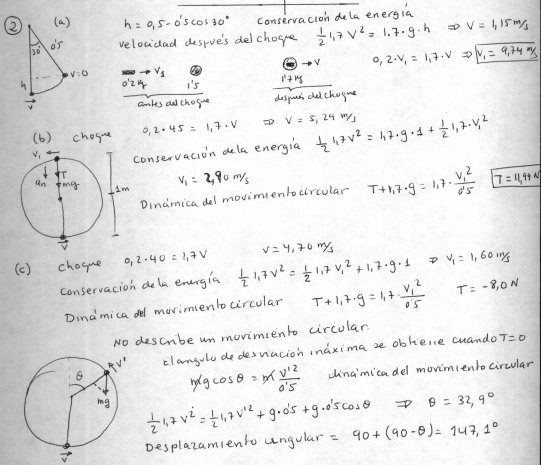 ② (a)
h = 0,5 - 0'5 cos 30° conservación de la energía
velocidad después del choque 1/2 1,7 V² = 1.7 · g · h ⇒ V = 1,15 m/s
30° 0'5
V=0
h
V
0'2 kg → V₁ 1'5
antes del choque
→ V
1'7 kg
después del choque
0,2 · V₁ = 1,7 · V ⇒ V₁ = 9,74 m/s
(b) choque 0,2 · 45 = 1,7 · V ⇒ V = 5,29 m/s
conservación de la energía 1/2 1,7 V² = 1,7 · g · 1 + 1/2 1,7 · V₁²
V₁ = 2,90 m/s
Dinámica del movimiento circular T + 1,7 · g = 1,7 · V₁²/0'5 T = 11,99 N
V₁
an T
mg
1m
V
(c) choque 0,2 · 40 = 1,7 V V = 4,70 m/s
conservación de la energía 1/2 1,7 V² = 1/2 1,7 V₁² + 1,7 · g · 1 ⇒ V₁ = 1,60 m/s
Dinámica del movimiento circular T + 1,7 · g = 1,7 · V₁²/0'5 T = -8,0 N
No describe un movimiento circular
El angulo de desviación máxima se obtiene cuando T=0
mg cos θ = m V'²/0'5 dinámica del movimiento circular
1/2 1,7 V² = 1/2 1,7 V'² + g · 0'5 + g · 0'5 cos θ ⇒ θ = 32,9°
Desplazamiento angular = 90 + (90 - θ) = 147,1°
θ V'
mg
V